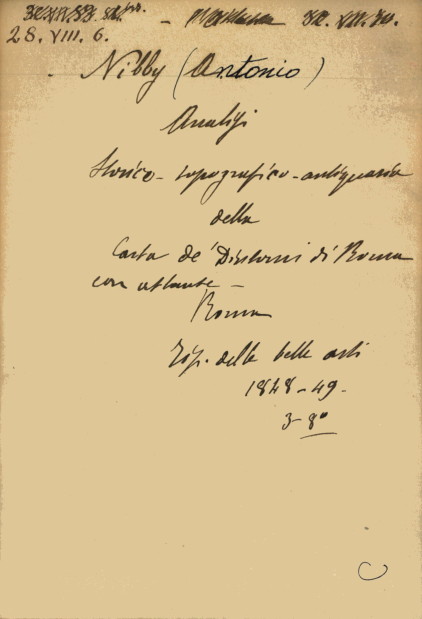 28. VIII. 6.
Nibby (Antonio)
Analisi
Storico-topografico-antiquaria
della
Carta de' Dintorni di Roma
con atlante -
Roma
Tip. delle belle arti
1848-49-
3-8º